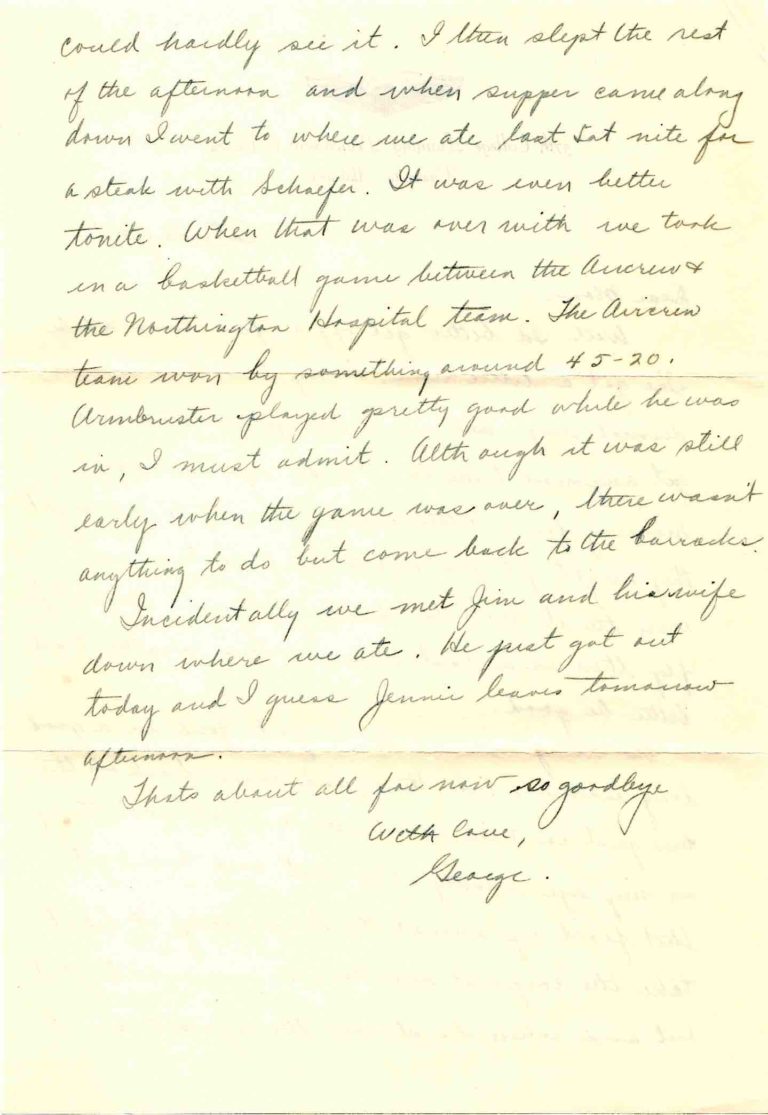 could hardly see it. I then slept the rest
of the afternoon and when supper came along
down I went to where we ate last Sat nite for
a steak with Schaefer. It was even better
tonite. When that was over with we took
in a basketball game between the Aircrew &
the Northington Hospital team. The Aircrew
team won by something around 45-20.
Armbruster played pretty good while he was
in, I must admit. Although it was still
early when the game was over, there wasn't
anything to do but come back to the barracks.
Incidentally we met Jim and his wife
down where we ate. He just got out
today and I guess Jennie leaves tomorrow
afternoon.
Thats about all for now so goodbye
With love,
George.